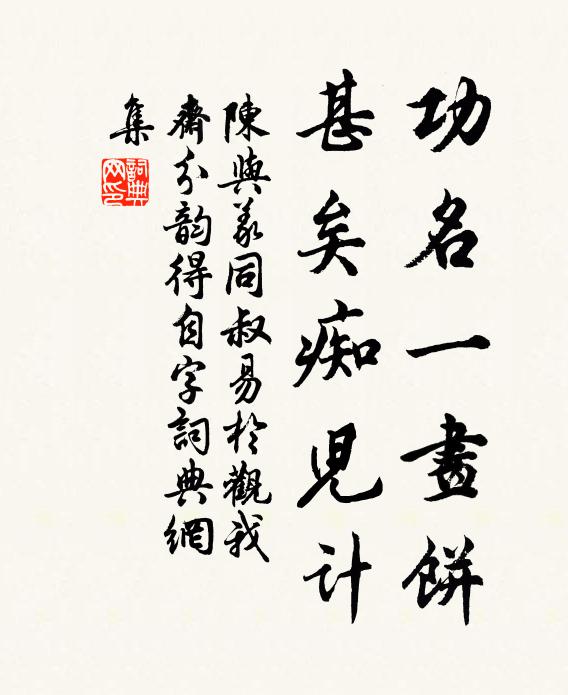 功名一畫餅
甚矣痴児計
陳與義同叔易於觀我
齋分韵得自字詞典網
集
詞典
网印